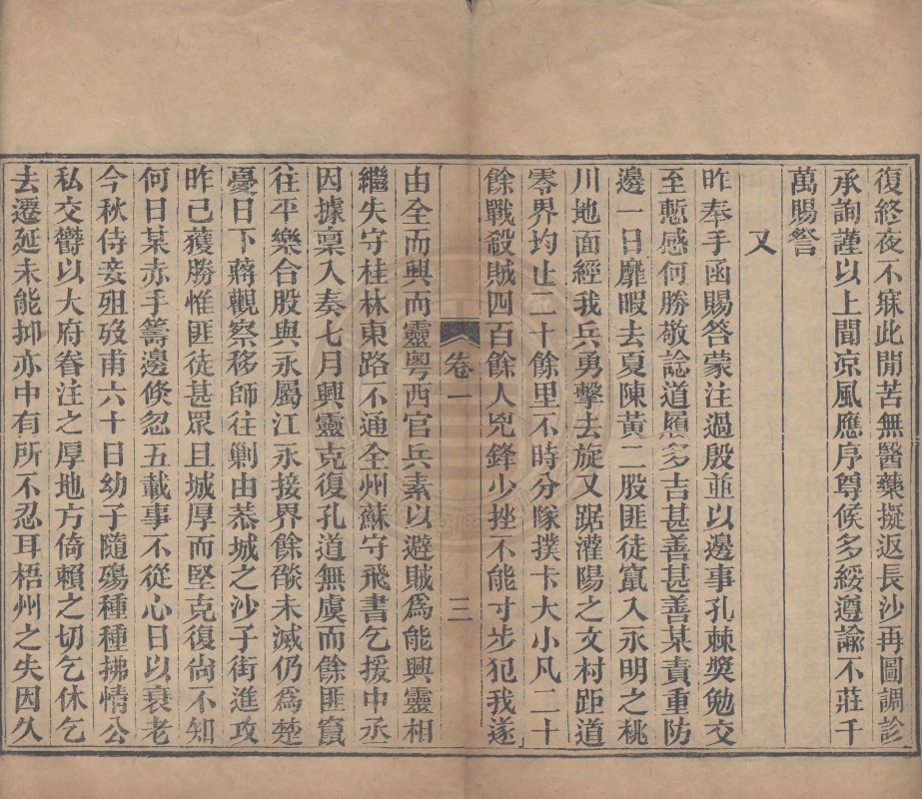 復終夜不寐此間苦無醫藥擬返長沙再圖調診
承詢謹以上聞凉風應序尊候多綏遵諭不莊千
萬賜詧
又
昨奉手函賜答蒙注過殷並以邊事孔棘奬勉交
至慙感何勝敬諗道履多吉甚善甚善某責重防
邊一日靡暇去夏陳黃二股匪徒竄入永明之桃
川地面經我兵勇擊去旋又踞灌陽之文村距道
零界均止二十餘里不時分隊撲卡大小凡二十
餘戰殺賊四百餘人兇鋒少挫不能寸步犯我遂
卷一
三
由全而興而靈粵西官兵素以避賊爲能興靈相
繼失守桂林東路不通全州蘇守飛書乞援中丞
因據稟入奏七月興靈克復孔道無虞而餘匪竄
往平樂合股與永屬江永接界餘燄未滅仍爲楚
憂日下蔣觀察移師往剿由恭城之沙子街進攻
昨已獲勝惟匪徒甚眾且城厚而堅克復尙不知
何日某赤手籌邊倏忽五載事不從心日以衰老
今秋侍妾殂歿甫六十日幼子隨殤種種拂情公
私交欝以大府眷注之厚地方倚賴之切乞休乞
去遷延未能抑亦中有所不忍耳梧州之失因久